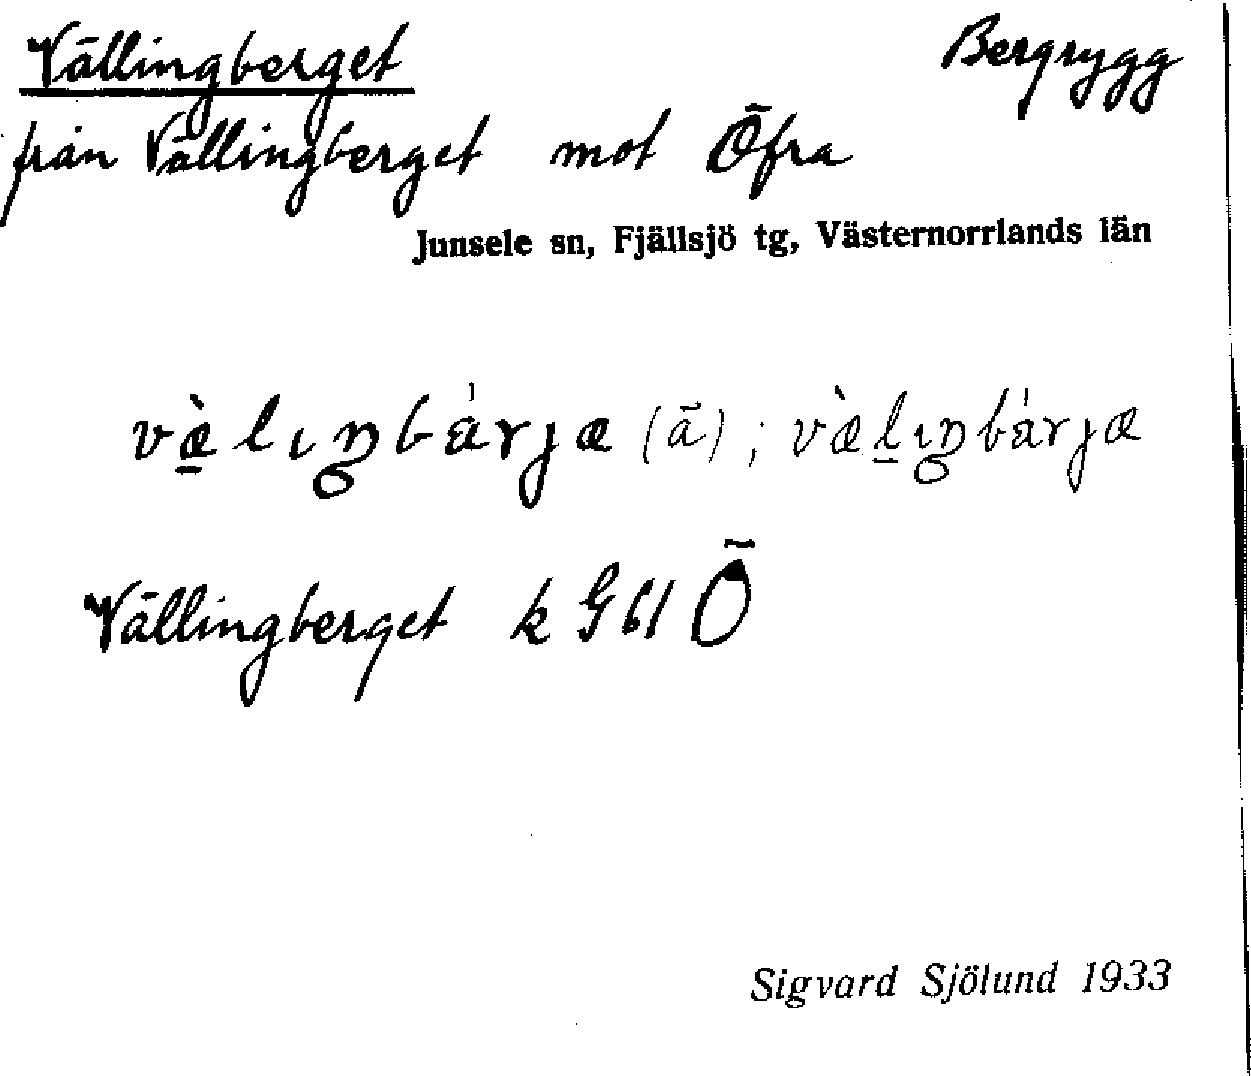 Vällingberget Bergrygg
från Vällingberget mot Öfra
Junsele sn, Fjällsjö tg, Västernorrlands län
Vällingberget k Gbl Ö
Sigvard Sjölund 1933